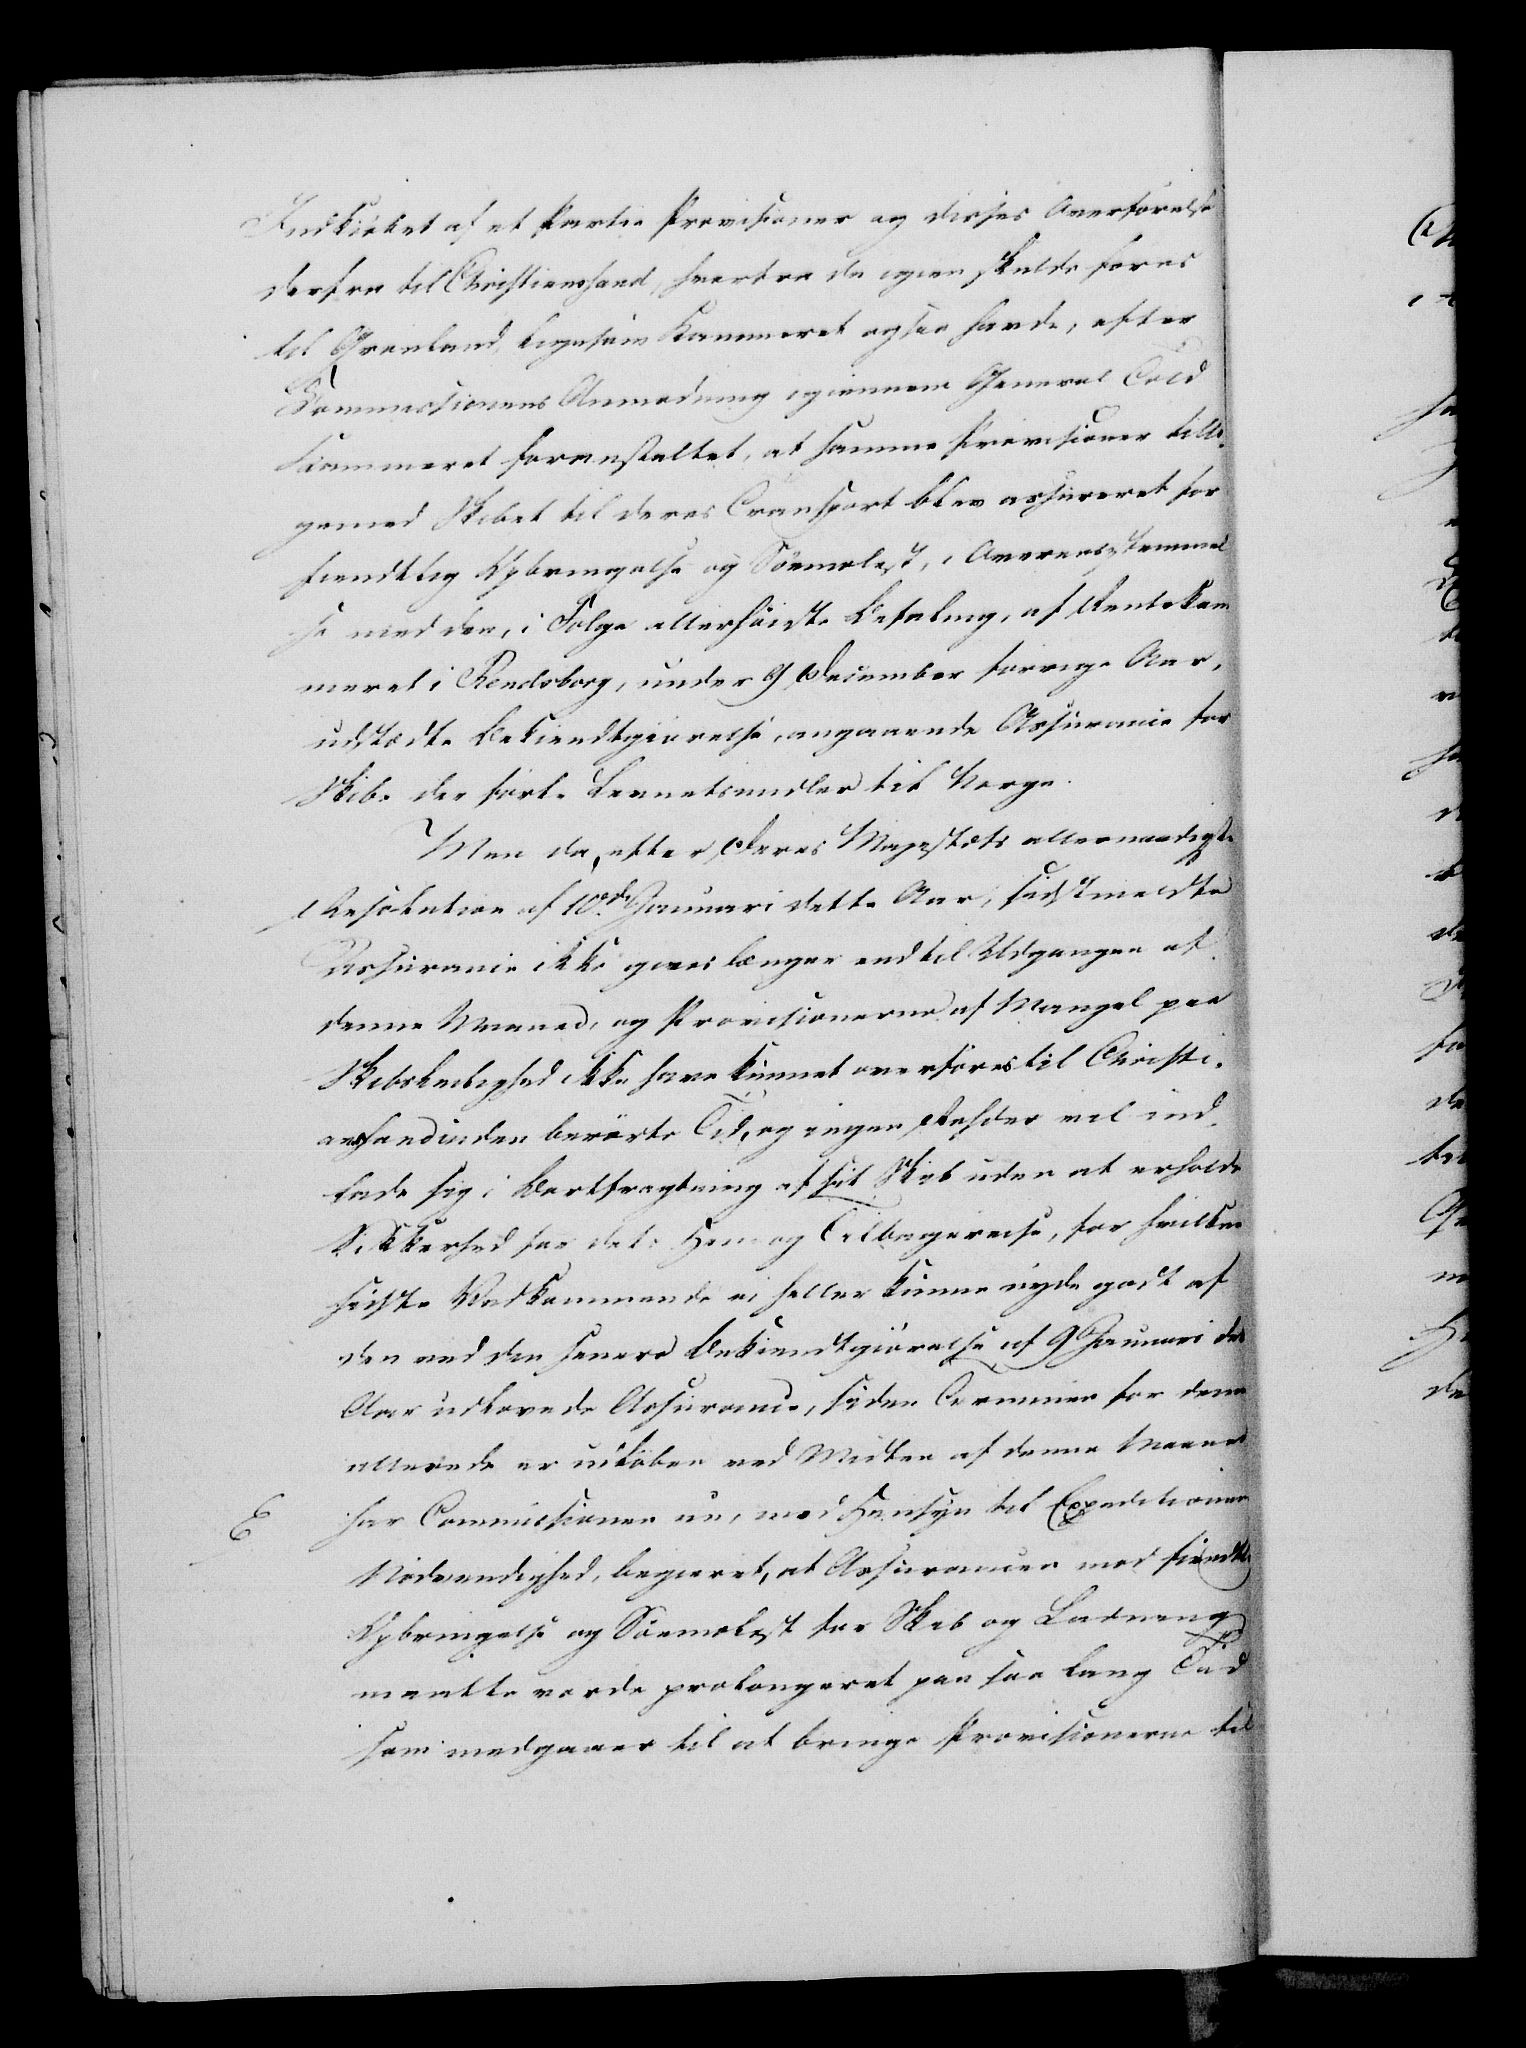 Indkiøbet af et Partie Provisioner og disses Overførelse
derfra til Christiansand, hvorfra de igien skulde føres
til Grønland, ligesom Kammeret ogsaa havde, efter
Commissionens Anmodning igiennem General Told
Kammeret foranstaltet, at samme Provisioner tilli¬
gemed Skibet til deres Transport blev assureret for
fiendtlig Opbringelse og Søemolest, i Overensstemmel
se med den, i Følge allerhøiste Befaling, af Rentekam
meret i Rendsborg, under 9 December forrige Aar,
udstædte Bekiendtgiørelse, angaaende Assurance for
Skibe der førte Levnetsmidler til Norge.
Men da, efter Deres Majestæts allernaadigste
Resolution af 10de Januari dette Aar, sidstmeldte
Assurance ikke gives længer end til Udgangen af
denne Maaned, og Provisionerne af Mangel paa
Skibsleilighed ikke have kunnet overføres til Christi¬
ansand inden berørte Tid, og ingen Rehder vil ind¬
lade sig i Bortfragtning af sit Skib uden at erholde
Sikkerhed for dets Hen og Tilbagereise, for hvilken
sidste Vedkommende ei heller kunne nyde godt af
den ved den senere Bekiendtgiørelse af 9 Januari dette
Aar udlovede Assurance, siden Terminen for denne
allerede er udløben ved Midten af denne Maaned
E
har Commissionen nu, med Hensyn til Expeditionens
Nødvendighed, begieret, at Assurancen mod fiendtlig
Opbringelse og Søemolest for Skib og Ladning
maatte vorde prolongeret paa saa lang Tid
som medgaaer til at bringe Provisionerne til